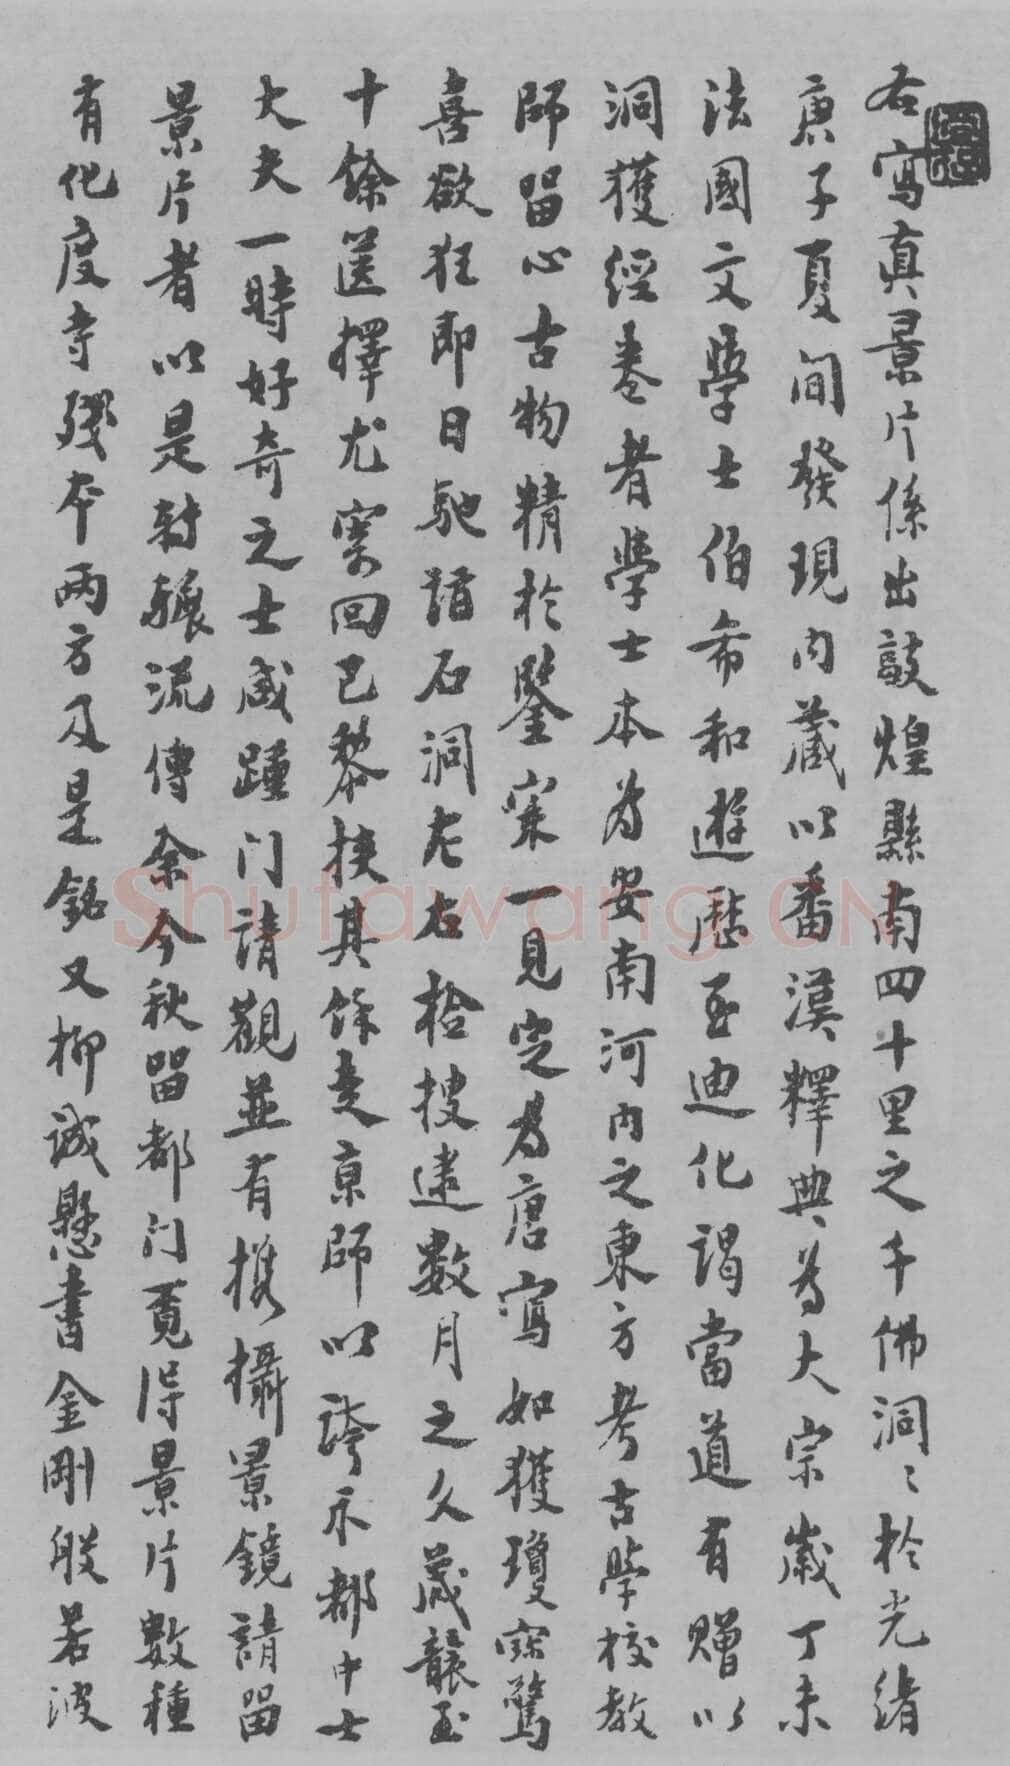 右寫真景片係出敦煌縣南四十里之千佛洞〻於光緒
庚子夏間發現內藏以番漢釋典為大宗歲丁未
法國文學士伯希和遊歷至迪化謁當道有贈以
洞獲經卷者學士本為安南河內之東方考古學校教
師留心古物精於鑒案一見定為唐寫如獲瓊寶驚
喜欲狂即日馳詣石洞左右搭搜逮數月之久歲襲至
十餘箧擇尤寄回巴黎挾其餘走京師以誇示都中士
大夫一時好奇之士咸踵门請觀並有攜攝景鏡請留
景片者以是對輾流傳余今秋留都门覓得景片數種
有化度寺殘本兩方及是銘又柳誠懸書金剛般若波
Shufawang.CN